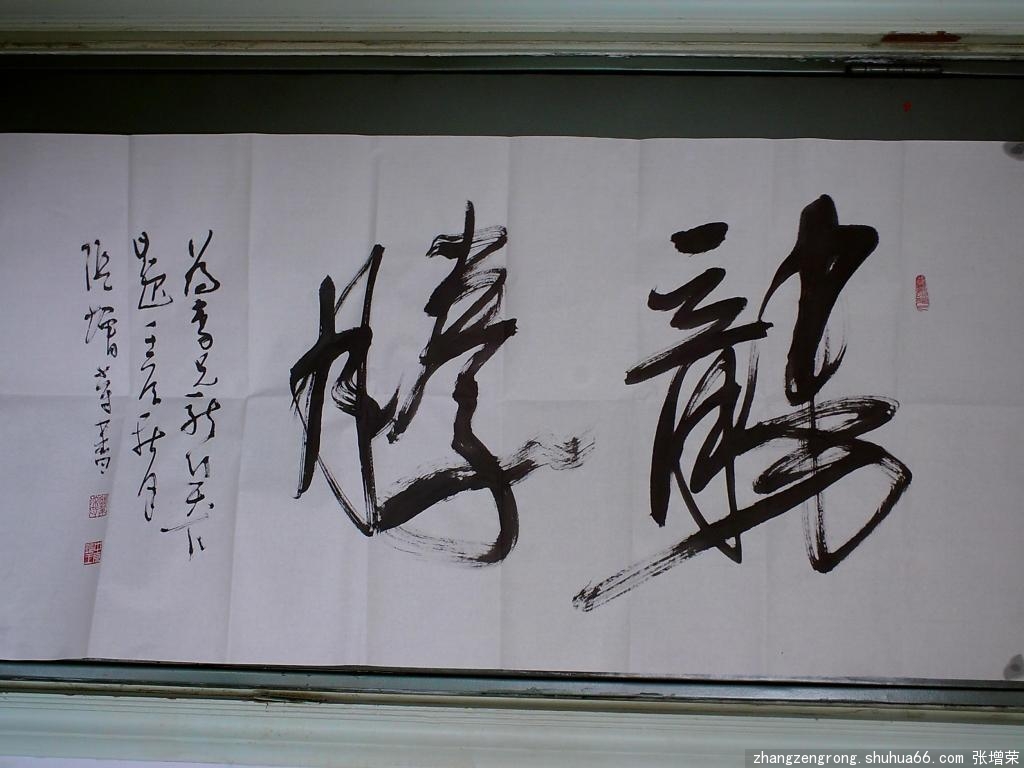 龍騰
為李兄龍行天下
題壬辰秋月
張增榮書
zhangzengrong.shuhua66.com 张增荣